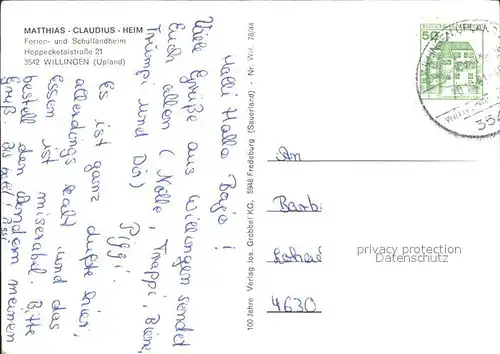 MATTHIAS - CLAUDIUS - HEIM
Ferien- und Schullandheim
Hoppecketalstraße 21
3542 WILLINGEN (Upland)
Halli Hallo Bajo!
Viele Grüße aus Willingen sendet
Euch allen (Nolle, Trappi, Biene,
Trümpi und Dir)
Piggi.
Es ist ganz dufte hier,
allerdings kalt und das
Essen ist miserabel. Bitte
bestell den andern meinen
Gruß. Bis
100 Jahre Verlag Jos. Grobbel KG, 5948 Fredeburg (Sauerland) - Nr. Wil. 78/44
50
354
An
Barb.
4630
privacy protection
Datenschutz